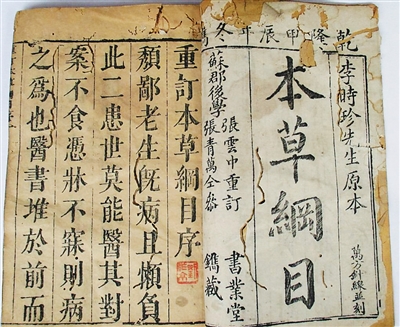 乾隆甲辰年冬鐫
李時珍先生原本
萬方針線並刻
本草綱目
張雲中重訂
蘇郡後學
張青萬仝參
書業堂
鐫藏
重訂本草綱目序
頽鄙老生既病且懶負
此二患世莫能醫其對
案不食憑牀不寐則病
之爲也醫書堆於前而